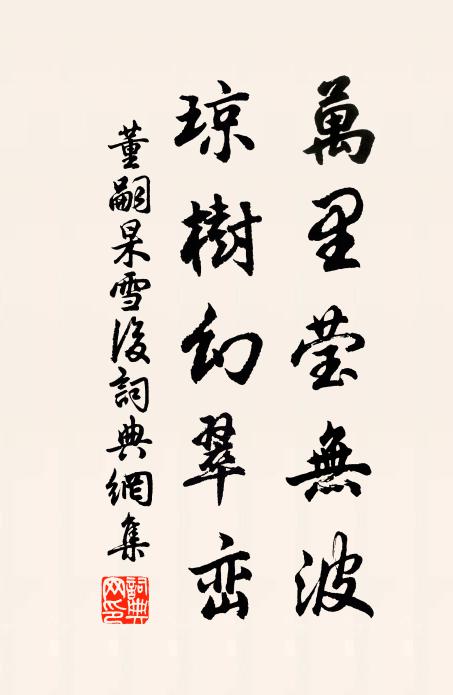 萬里莹無波
琼樹幻翠峦
董嗣杲雪後詞典網集
詞典網印